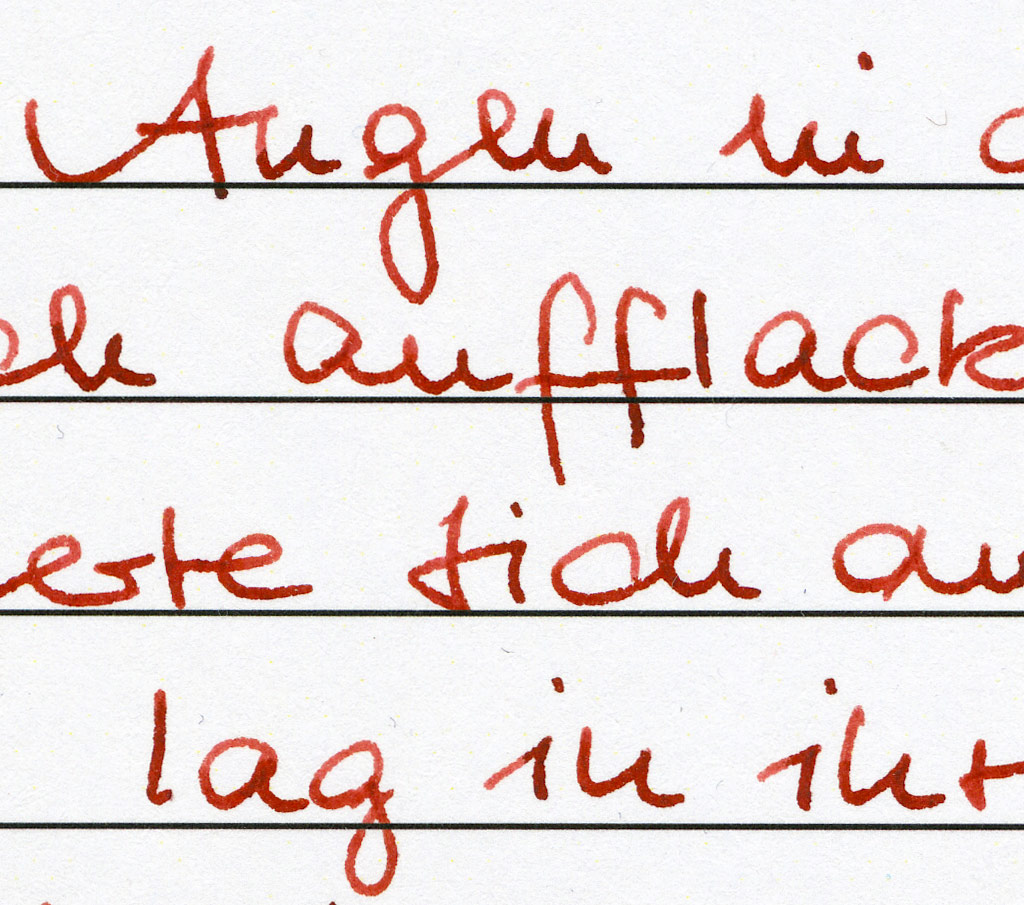 Augen in d
ch aufflack
erte sich au
lag in ihr